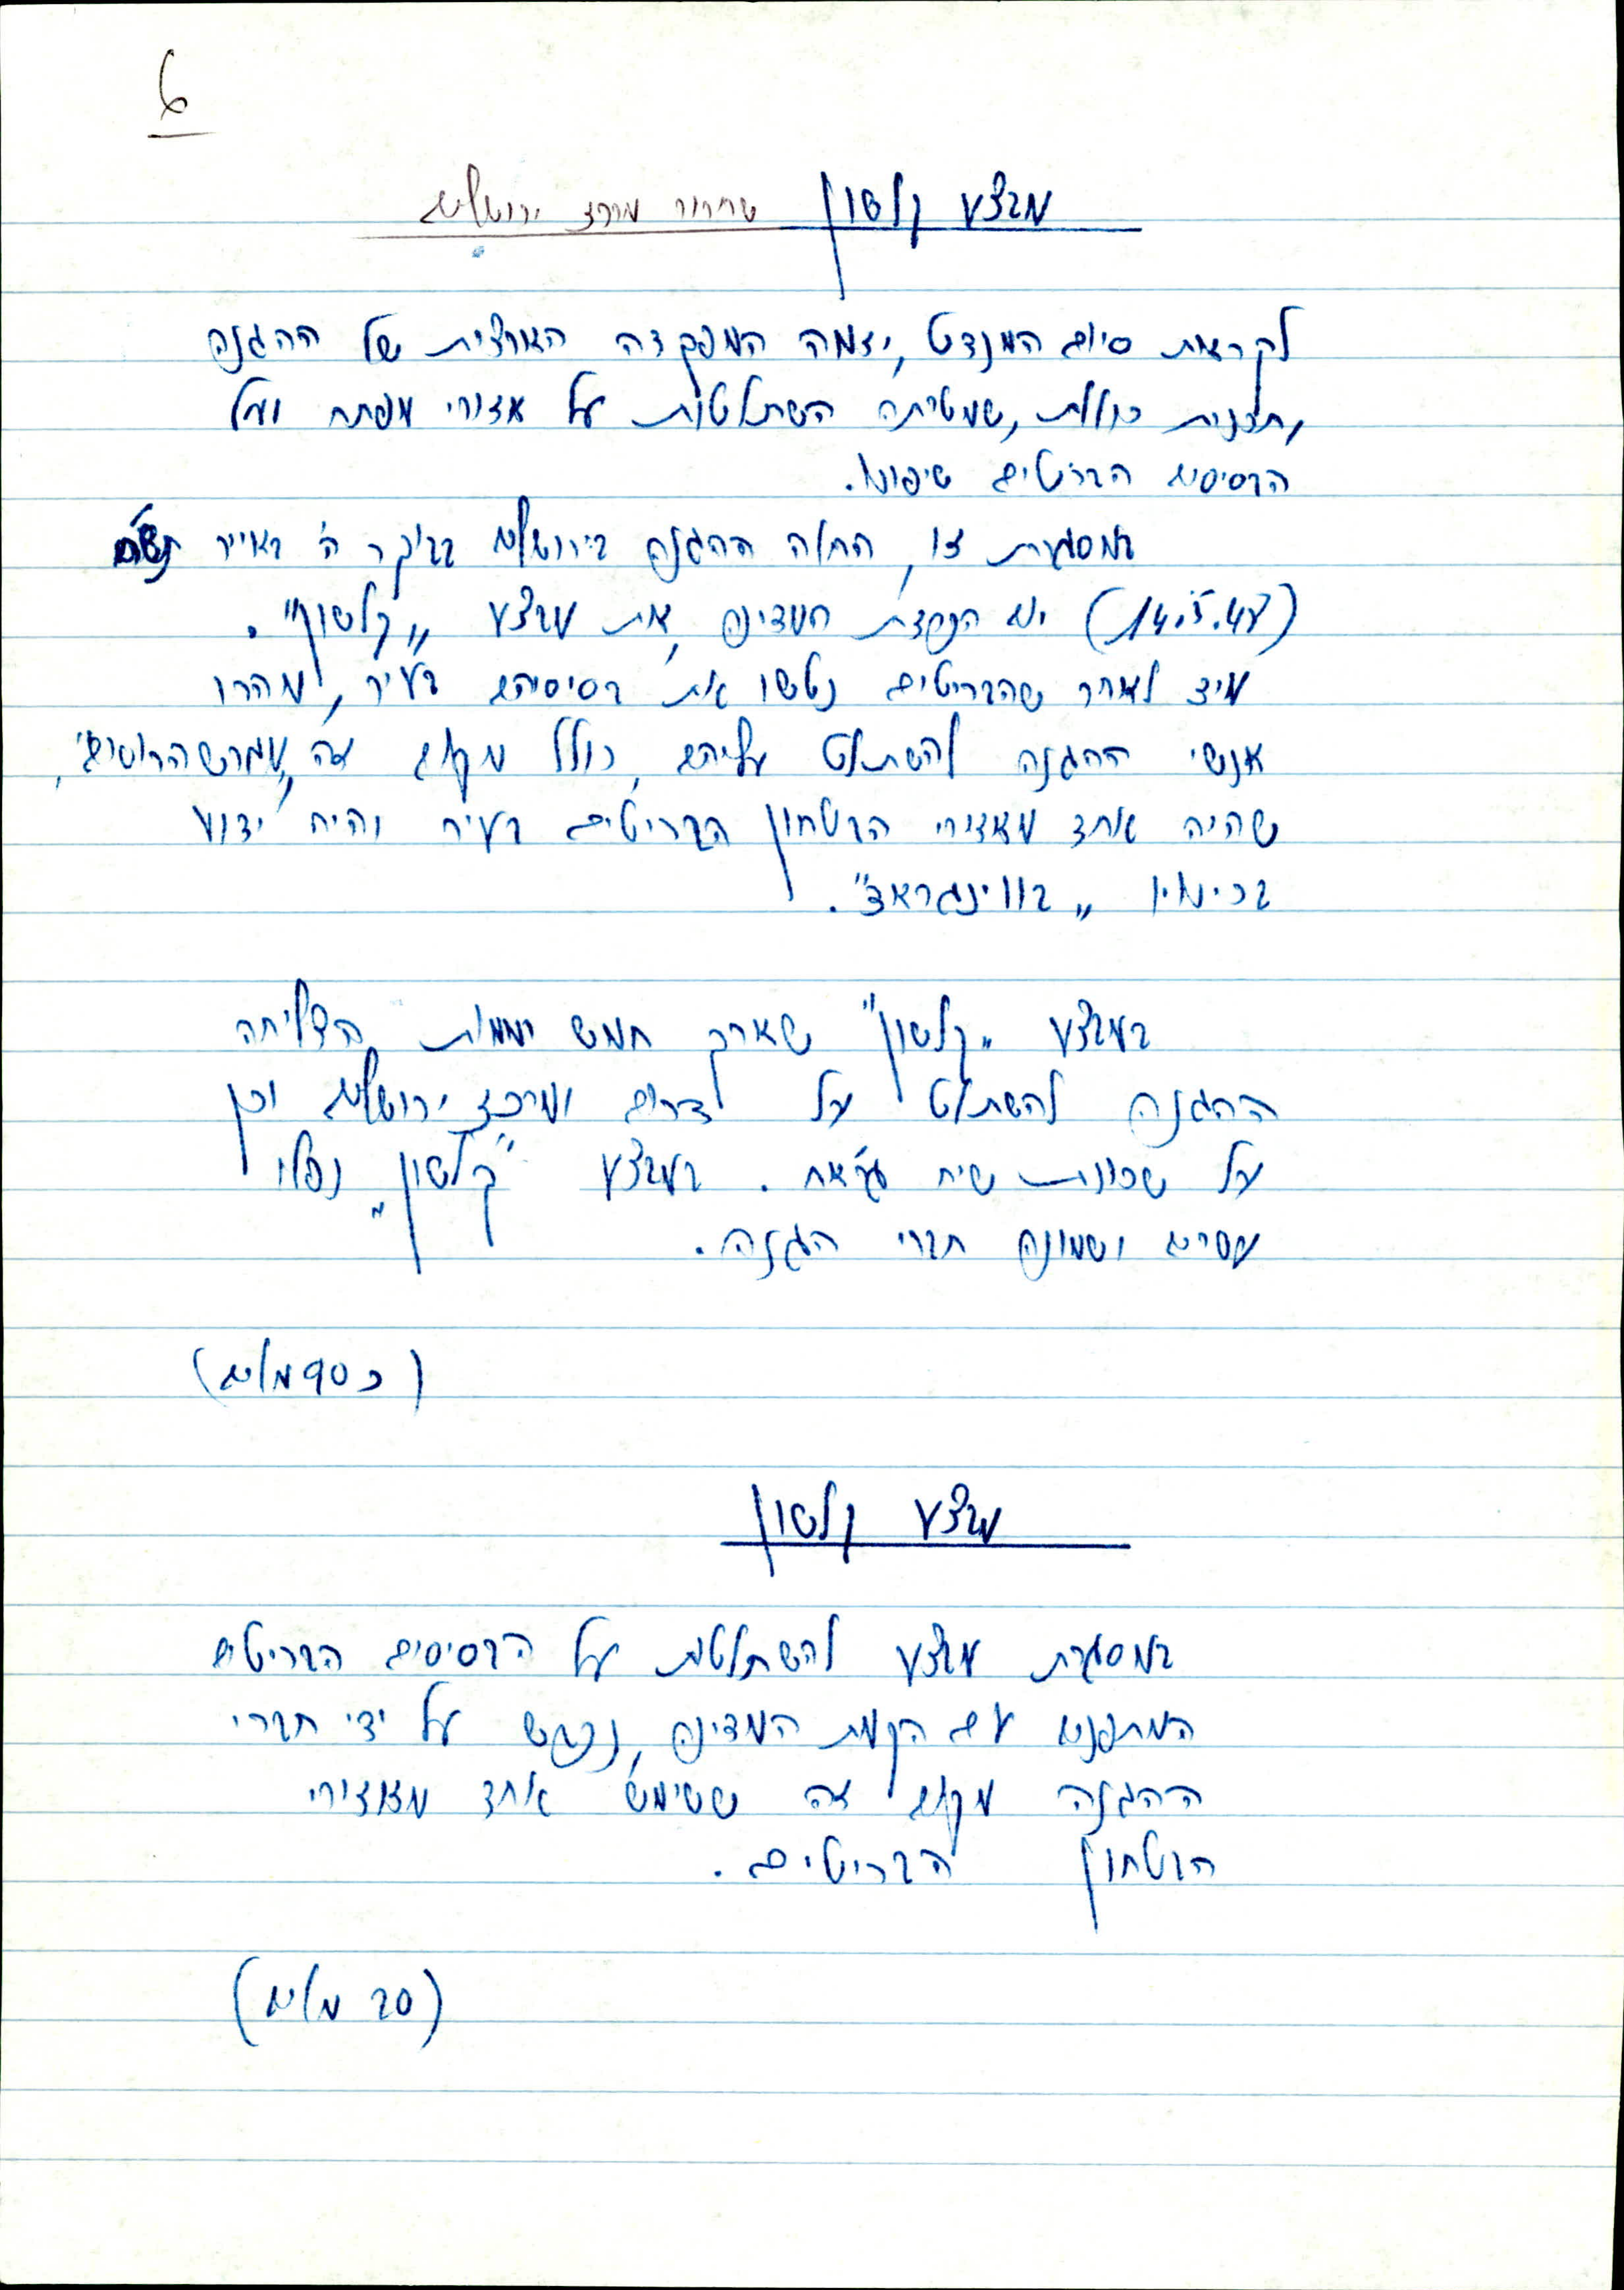 6
מבצע קלשון שחרור מרכז ירושלים
לקראת סיום המנדט, יזמה המפקדה הארצית של ההגנה
תכנית כוללת, שמטרתה השתלטות על אזורי מפתח ועל
הבסיסים הבריטים שיפונו.
במסגרת זו, החלה ההגנה בירושלים בבוקר ה' באייר תש"ח
(14.5.48) יום הכרזת המדינה, את מבצע "קלשון".
מיד לאחר שהבריטים נטשו את בסיסיהם בעיר, מהרו
אנשי ההגנה להשתלט עליהם, כולל מקום זה, מגרש הרוסים,
שהיה אחד מאזורי הבטחון הבריטים בעיר והיה ידוע
בכינויו "בווינגראד".
במבצע "קלשון" שארך חמש יממות הצליחה
ההגנה להשתלט על דרום ומרכז ירושלים וכן
על שכונת שיח ג'ראח. במבצע "קלשון" נפלו
עשרים ושמונה חברי הגנה.
(כ 90 מלים)
מבצע קלשון
במסגרת מבצע להשתלטות על הבסיסים הבריטים
המתפנים עם הקמת המדינה, נכבש על ידי חברי
ההגנה מקום זה ששימש אחד מאזורי
הבטחון הבריטים.
(20 מלים)